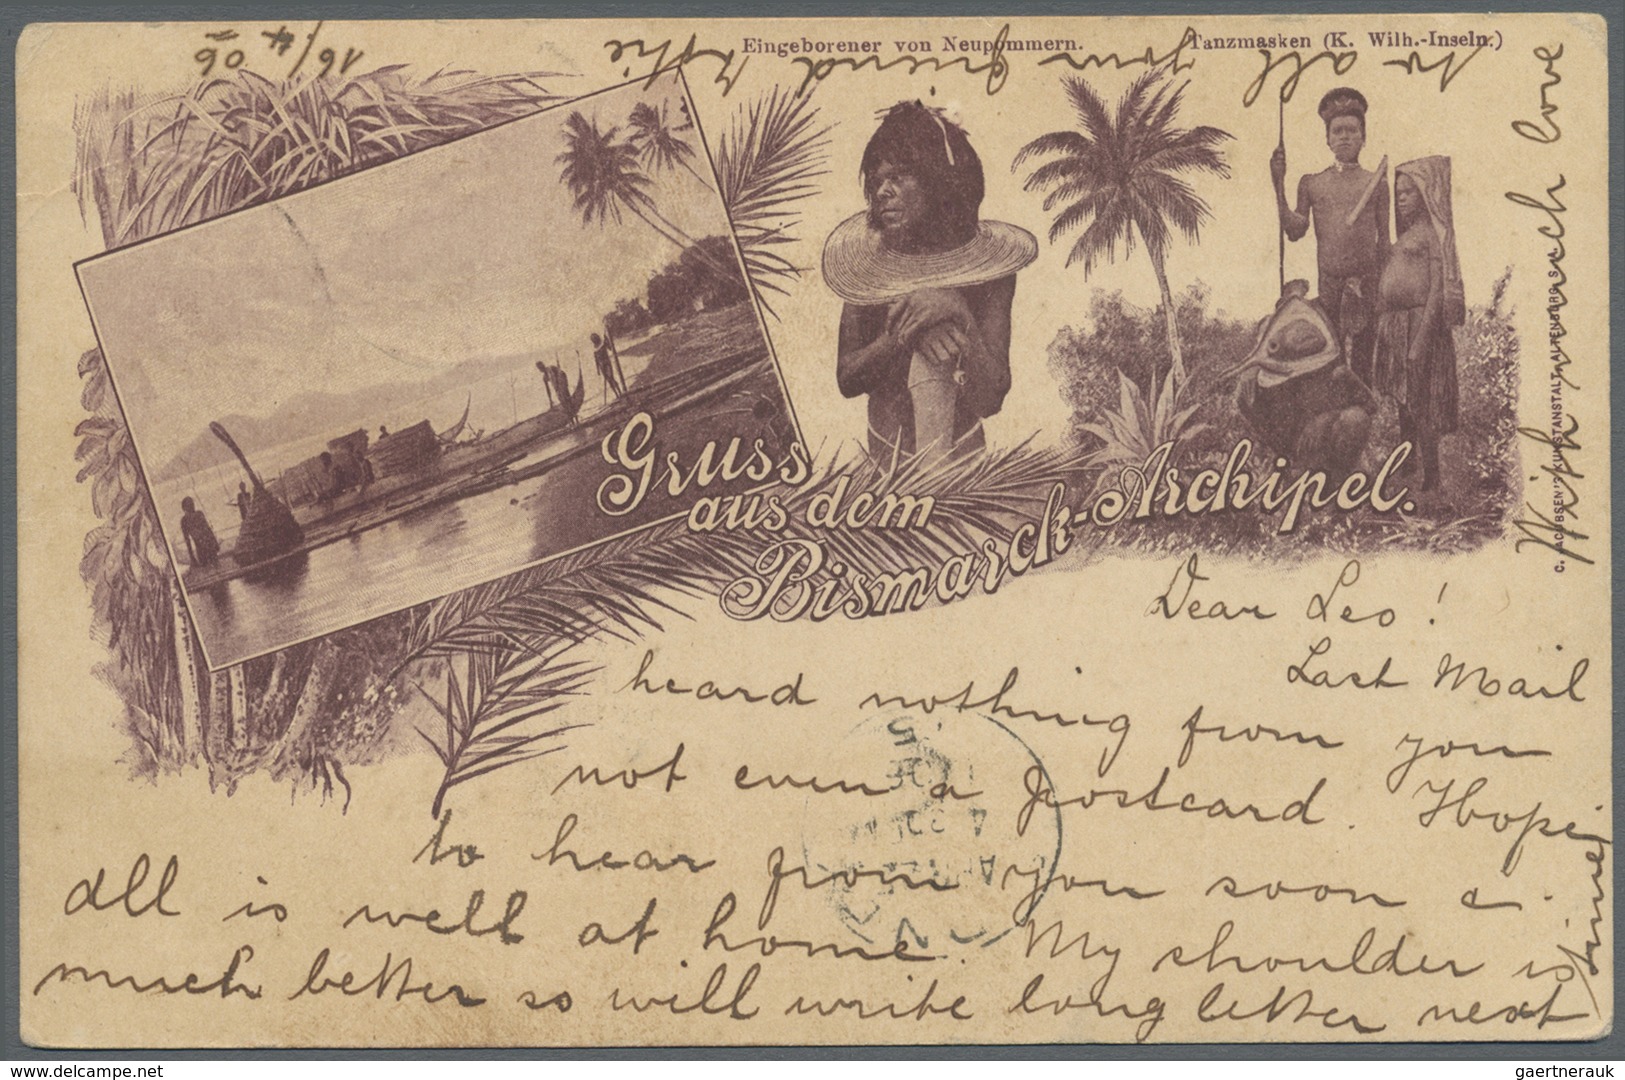 16/4 06
Eingeborener von Neupommern.
Tanzmasken (K. Wilh.-Inseln.)
Gruss
aus dem
Bismarck-Archipel.
Dear Leo!
Last Mail
heard nothing from you
not even a postcard. Hope
to hear from you soon &
all is well at home. My shoulder is
much better so will write long letter next
time
With much love
to all your friend
delcampe.net
gaertnerauk